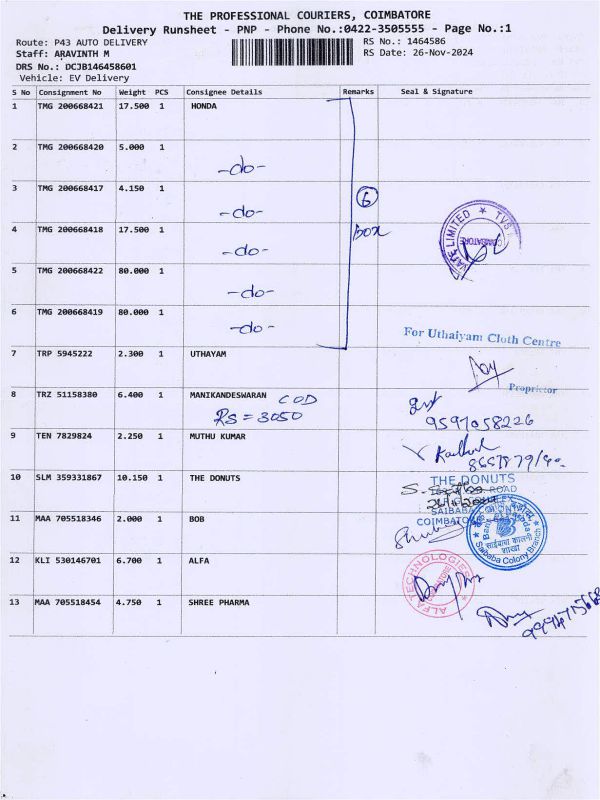 THE PROFESSIONAL COURIERS, COIMBATORE
Delivery Runsheet - PNP - Phone No.:0422-3505555 - Page No.:1
Route: P43 AUTO DELIVERY RS No.: 1464586
Staff: ARAVINTH M RS Date: 26-Nov-2024
DRS No.: DCJB146458601
Vehicle: EV Delivery
S No Consignment No Weight PCS Consignee Details Remarks Seal & Signature
1 TMG 200668421 17.500 1 HONDA
2 TMG 200668420 5.000 1 -do-
3 TMG 200668417 4.150 1 -do-
6
BOX
4 TMG 200668418 17.500 1 -do-
LIMITED ★ TVS
COIMBATORE
5 TMG 200668422 80.000 1 -do-
6 TMG 200668419 80.000 1 -do-
For Uthaiyam Cloth Centre
7 TRP 5945222 2.300 1 UTHAYAM
Proprietor
8 TRZ 51158380 6.400 1 MANIKANDESWARAN COD
RS = 3050
9597058226
9 TEN 7829824 2.250 1 MUTHU KUMAR
10 SLM 359331867 10.150 1 THE DONUTS
THE DONUTS
ROAD
SAIBABA COLONY
COIMBATORE
11 MAA 705518346 2.000 1 BOB
साईबाबा कालनी
शाखा
Saibaba Colony Branch
12 KLI 530146701 6.700 1 ALFA
ALFA TECHNOLOGIES
COIMBATORE
13 MAA 705518454 4.750 1 SHREE PHARMA